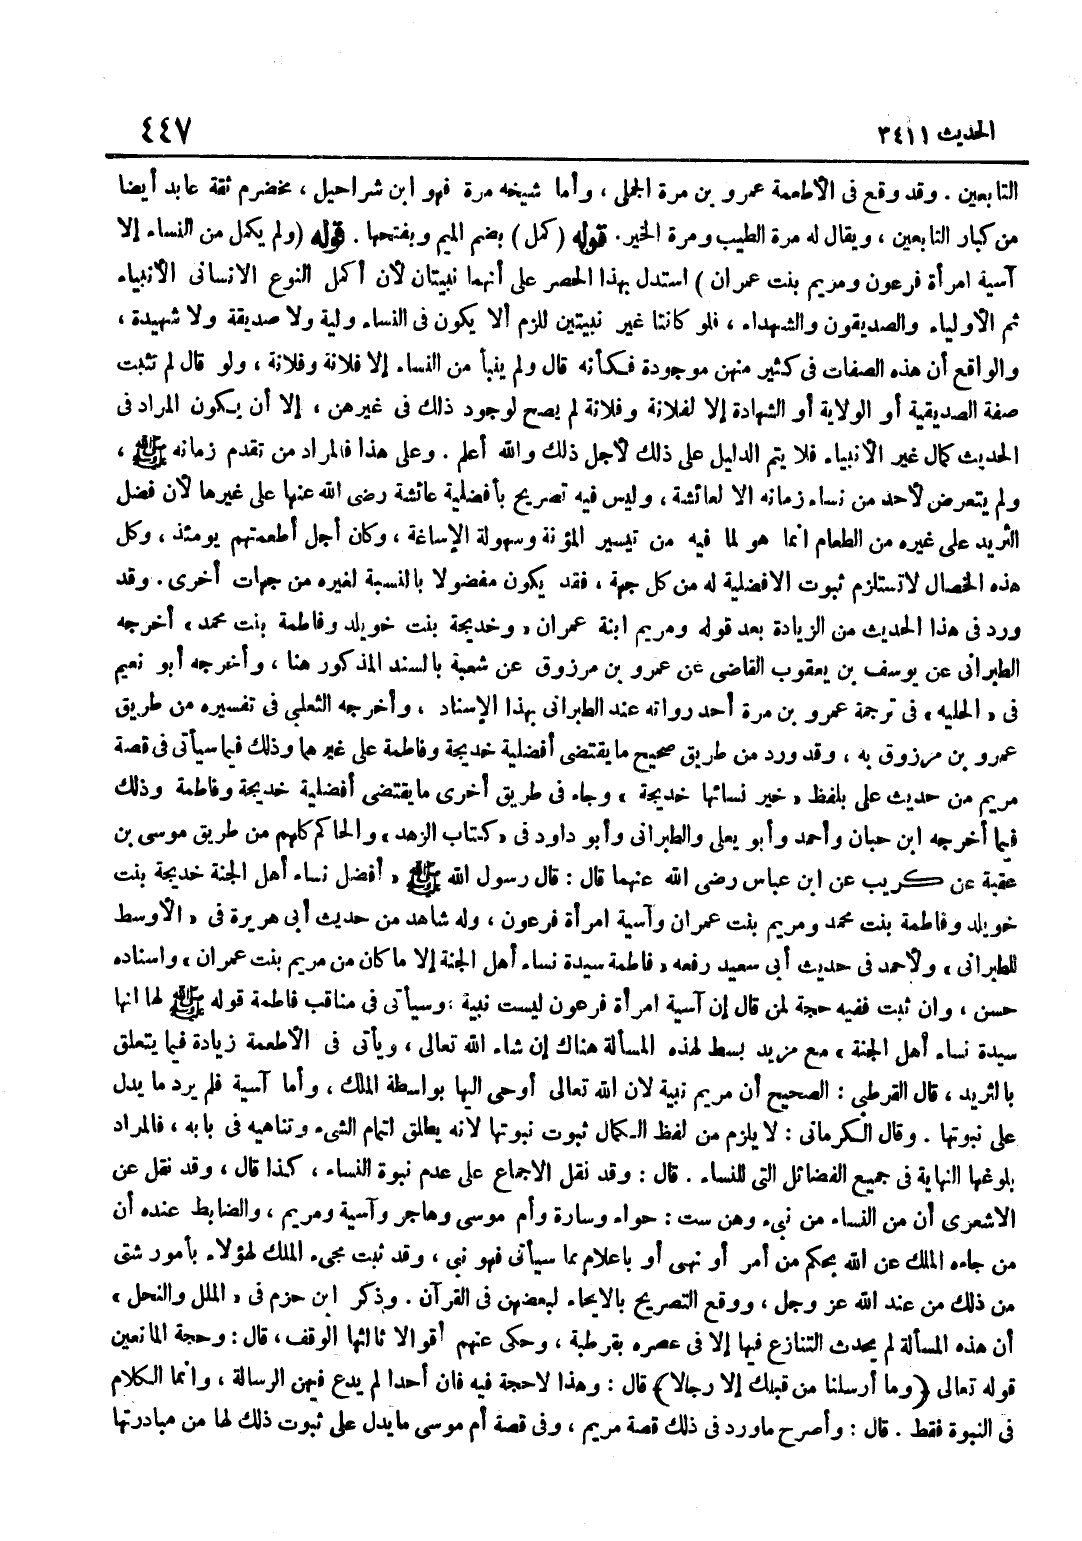 الحديث ٣٤١١
٤٤٧
التابعين . وقد وقع فى الأطعمة عمرو بن مرة الجملى ، وأما شيخه مرة فهو ابن شراحيل ، مخضرم ثقة عابد أيضا
من كبار التابعين ، ويقال له مرة الطيب ومرة الخير. قوله (كمل) بضم الميم وبفتحها . قوله (ولم يكمل من النساء إلا
آسية امرأة فرعون ومريم بنت عمران) استدل بهذا الحصر على أنهما نبيتان لأن أكمل النوع الانسانى الأنبياء
ثم الأولياء والصديقون والشهداء ، فلو كانتا غير نبيتين للزم ألا يكون فى النساء ولية ولا صديقة ولا شهيدة ،
والواقع أن هذه الصفات فى كثير منهن موجودة فكأنه قال ولم ينبأ من النساء إلا فلانة وفلانة ، ولو قال لم تثبت
صفة الصديقية أو الولاية أو الشهادة إلا لفلانة وفلانة لم يصح لوجود ذلك فى غيرهن ، إلا أن يكون المراد فى
الحديث كمال غير الأنبياء فلا يتم الدليل على ذلك لأجل ذلك والله أعلم . وعلى هذا فالمراد من تقدم زمانه ﷺ ،
ولم يتعرض لأحد من نساء زمانه الا لعائشة ، وليس فيه تصريح بأفضلية عائشة رضى الله عنها على غيرها لأن فضل
الثريد على غيره من الطعام انما هو لما فيه من تيسير المؤنة وسهولة الإساغة ، وكان أجل أطعمتهم يومئذ ، وكل
هذه الخصال لاتستلزم ثبوت الافضلية له من كل جهة ، فقد يكون مفضولا بالنسبة لغيره من جهات أخرى . وقد
ورد فى هذا الحديث من الزيادة بعد قوله ومريم ابنة عمران « وخديجة بنت خويلد وفاطمة بنت محمد » أخرجه
الطبرانى عن يوسف بن يعقوب القاضى عن عمرو بن مرزوق عن شعبة بالسند المذكور هنا ، وأخرجه أبو نعيم
فى « الحليه » فى ترجمة عمرو بن مرة أحد رواته عند الطبرانى بهذا الإسناد ، وأخرجه الثعلبى فى تفسيره من طريق
عمرو بن مرزوق به ، وقد ورد من طريق صحيح ما يقتضى أفضلية خديجة وفاطمة على غيرهما وذلك فيما سيأتى فى قصة
مريم من حديث على بلفظ « خير نسائها خديجة » وجاء فى طريق أخرى ما يقتضى أفضلية خديجة وفاطمة وذلك
فيما أخرجه ابن حبان وأحمد وأبو يعلى والطبرانى وأبو داود فى « كتاب الزهد » والحاكم كلهم من طريق موسى بن
عقبة عن كريب عن ابن عباس رضى الله عنهما قال : قال رسول الله ﷺ « أفضل نساء أهل الجنة خديجة بنت
خويلد وفاطمة بنت محمد ومريم بنت عمران وآسية امرأة فرعون ، وله شاهد من حديث أبى هريرة فى « الأوسط
للطبرانى » ولأحمد فى حديث أبى سعيد رفعه « فاطمة سيدة نساء أهل الجنة إلا ما كان من مريم بنت عمران » واسناده
حسن ، وان ثبت ففيه حجة لمن قال إن آسية امرأة فرعون ليست نبية ؛ وسيأتى فى مناقب فاطمة قوله ﷺ لها انها
سيدة نساء أهل الجنة » مع مزيد بسط لهذه المسألة هناك إن شاء الله تعالى ، ويأتى فى الأطعمة زيادة فيما يتعلق
بالثريد ، قال القرطبى : الصحيح أن مريم نبية لان الله تعالى أوحى اليها بواسطة الملك ، وأما آسية فلم يرد ما يدل
على نبوتها . وقال الكرمانى : لا يلزم من لفظ الكمال ثبوت نبوتها لانه يطلق لتمام الشىء وتناهيه فى بابه ، فالمراد
بلوغها النهاية فى جميع الفضائل التى للنساء . قال : وقد نقل الاجماع على عدم نبوة النساء ، كذا قال ، وقد نقل عن
الاشعرى أن من النساء من نبىء وهن ست : حواء وسارة وأم موسى وهاجر وآسية ومريم ، والضابط عنده أن
من جاءه الملك عن الله بحكم من أمر أو نهى أو باعلام بما سيأتى فهو نبى ، وقد ثبت مجىء الملك لهؤلاء بأمور شتى
من ذلك من عند الله عز وجل ، ووقع التصريح بالايحاء لبعضهن فى القرآن . وذكر ابن حزم فى « الملل والنحل »
أن هذه المسألة لم يحدث التنازع فيها إلا فى عصره بقرطبة ، وحكى عنهم أقوالا ثالثها الوقف ، قال : وحجة المانعين
قوله تعالى (وما أرسلنا من قبلك إلا رجالا) قال : وهذا لاحجة فيه فان أحدا لم يدع فيهن الرسالة ، وانما الكلام
فى النبوة فقط . قال : وأصرح ماورد فى ذلك قصة مريم ، وفى قصة أم موسى مايدل على ثبوت ذلك لها من مبادرتها